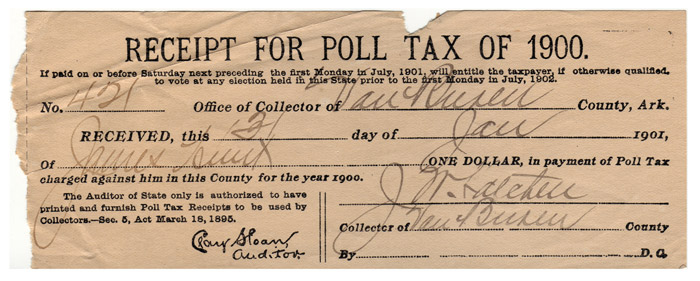 RECEIPT FOR POLL TAX OF 1900.
If paid on or before Saturday next preceding the first Monday in July, 1901, will entitle the taxpayer, if otherwise qualified,
to vote at any election held in this State prior to the first Monday in July, 1902.
No. 431 Office of Collector of Van Buren County, Ark.
RECEIVED, this 3 day of Jan 1901,
Of James ONE DOLLAR, in payment of Poll Tax
charged against him in this County for the year 1900.
The Auditor of State only is authorized to have
printed and furnish Poll Tax Receipts to be used by
Collectors.—Sec. 5, Act March 18, 1895.
Clay Sloan,
Auditor.
J W
Collector of Van Buren County
By D. C.